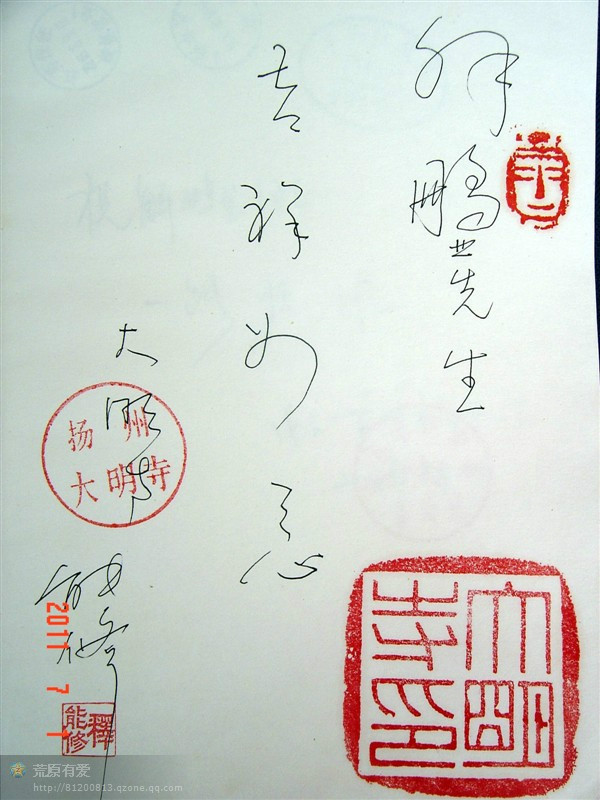 鹏先生
吉祥如意
大明寺
能修
扬州
大明寺
大明寺印
释能修
2011 7 1
荒原有爱
http://81200813.qzone.qq.com